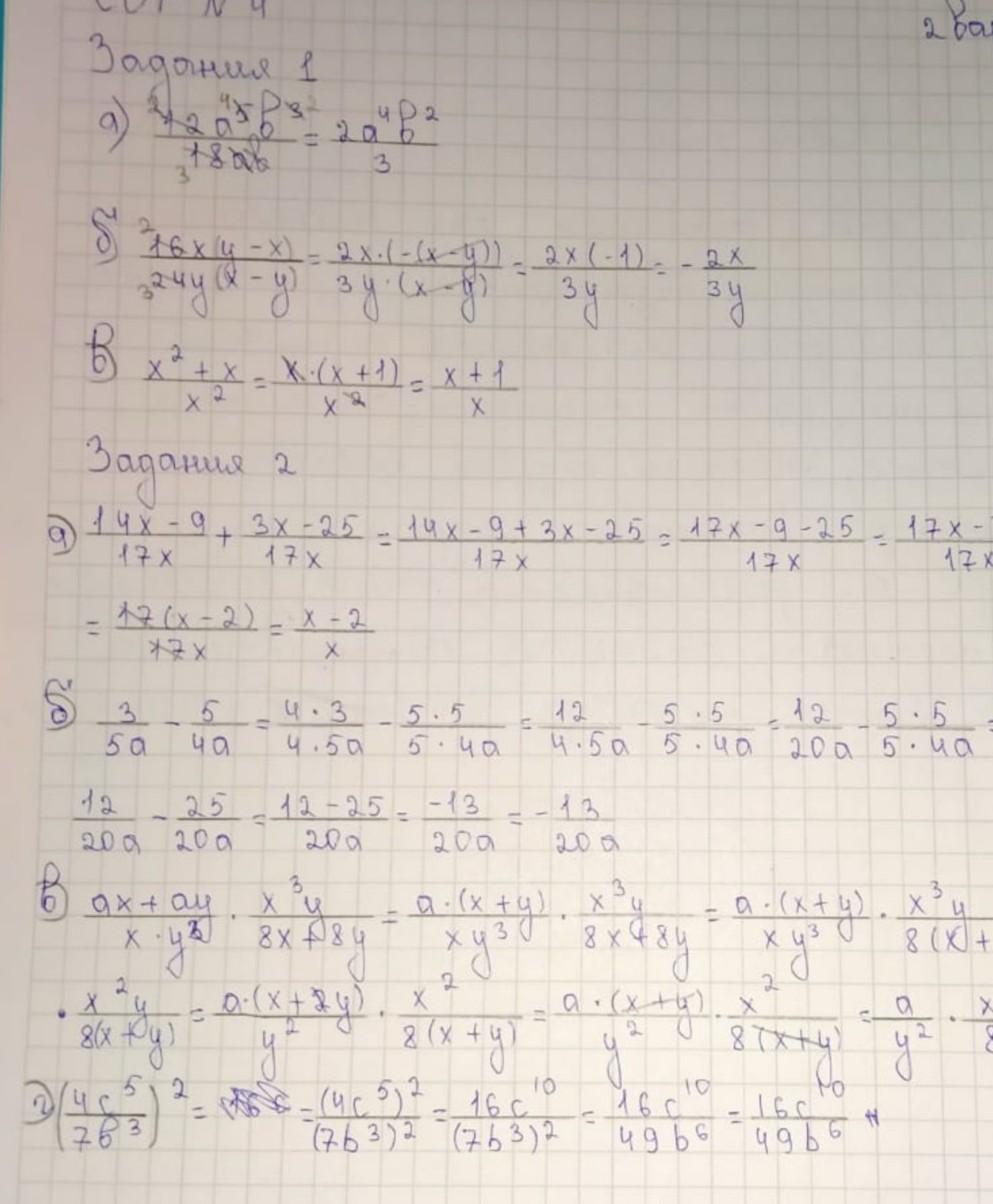 N 4
2 ва
Задания 1
а) 12a⁵b³/18ab = 2a⁴b²/3
б) 16x(y - x)/24y(x - y) = 2x·(-(x-y))/3y·(x-y) = 2x(-1)/3y = - 2x/3y
в) x² + x/x² = x·(x+1)/x² = x+1/x
Задания 2
а) 14x - 9/17x + 3x - 25/17x = 14x - 9 + 3x - 25/17x = 17x - 9 - 25/17x = 17x -/17x
= 17(x-2)/17x = x-2/x
б) 3/5a - 5/4a = 4·3/4·5a - 5·5/5·4a = 12/4·5a - 5·5/5·4a = 12/20a - 5·5/5·4a =
12/20a - 25/20a = 12-25/20a = -13/20a = - 13/20a
в) ax + ay/x·y³ · x³y/8x+8y = a·(x+y)/xy³ · x³y/8x+8y = a·(x+y)/xy³ · x³y/8(x+
· x²y/8(x+y) = a·(x+y)/y² · x²/8(x+y) = a·(x+y)/y² · x²/8(x+y) = a/y² · x/8
г) (4c⁵/7b³)² = = (4c⁵)²/(7b³)² = 16c¹⁰/(7b³)² = 16c¹⁰/49b⁶ = 16c¹⁰/49b⁶